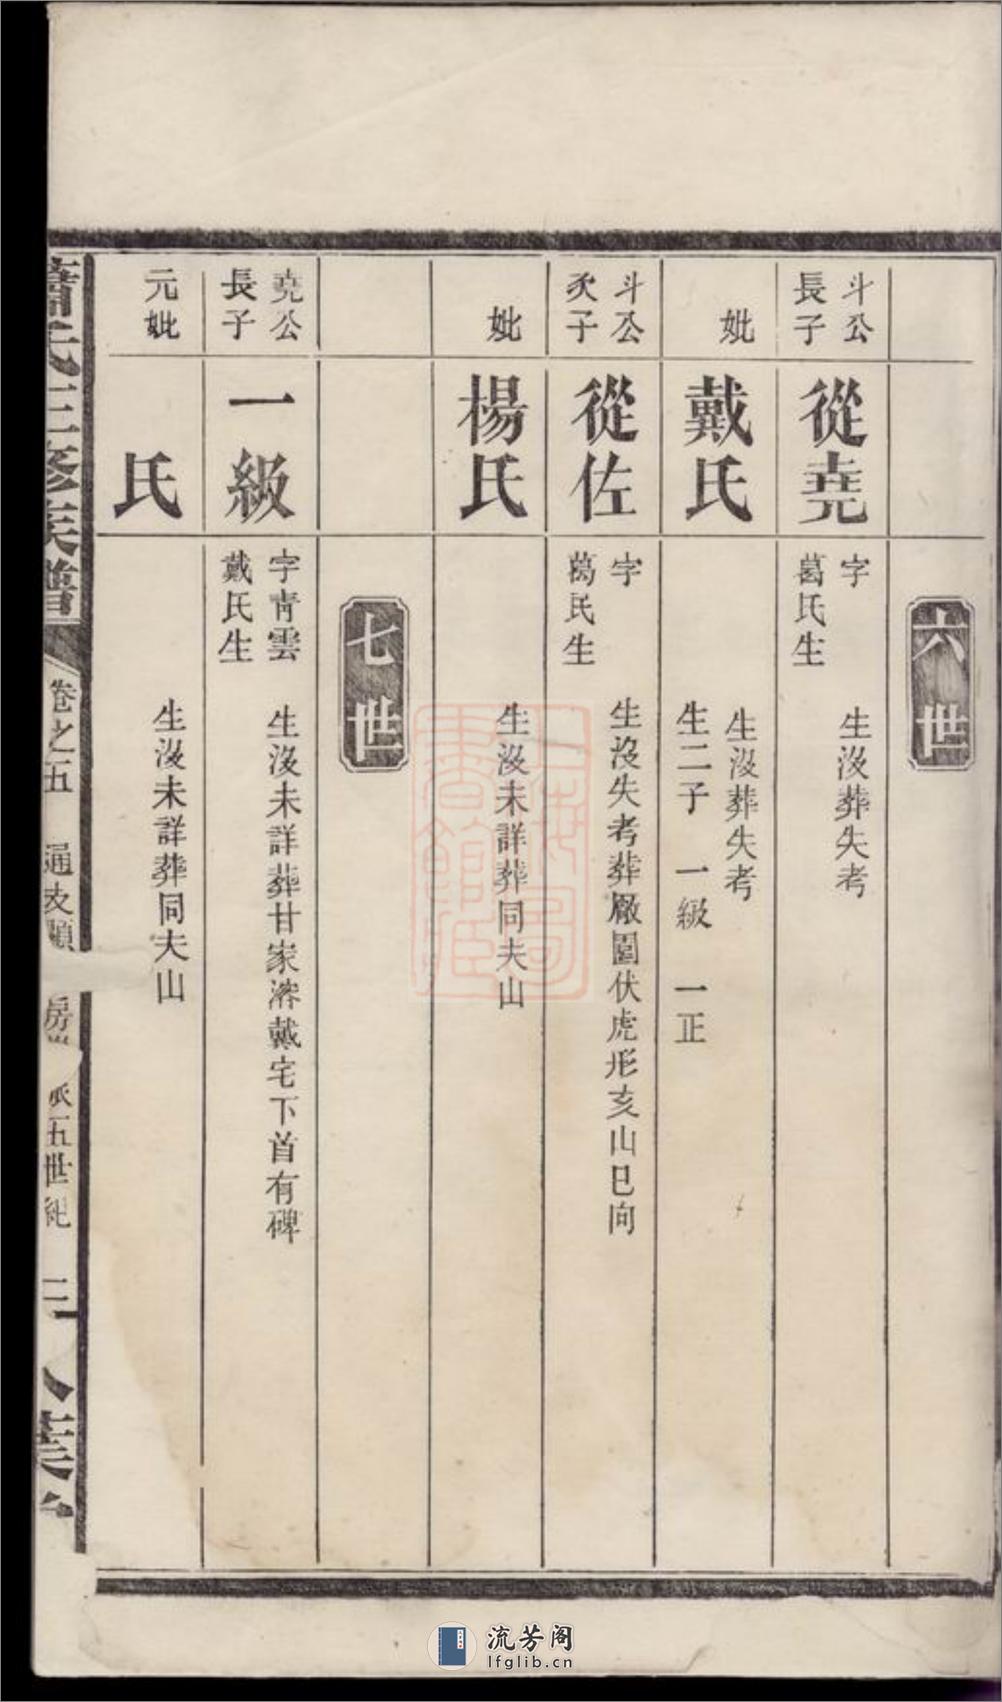 六世
斗公
長子
從堯
字
葛氏生
生沒葬失考
妣
戴氏
生沒葬失考
生二子 一級 一正
斗公
次子
從佐
字
葛民生
生沒失考葬廠園伏虎形亥山巳向
妣
楊氏
生沒未詳葬同夫山
七世
堯公
長子
一級
字青雲
戴氏生
生沒未詳葬甘家濸戴宅下首有碑
元妣
氏
生沒未詳葬同夫山
蕭氏三修族譜
卷之五
通支顯
房
派五世紀
三
流芳阁
lfglib.cn